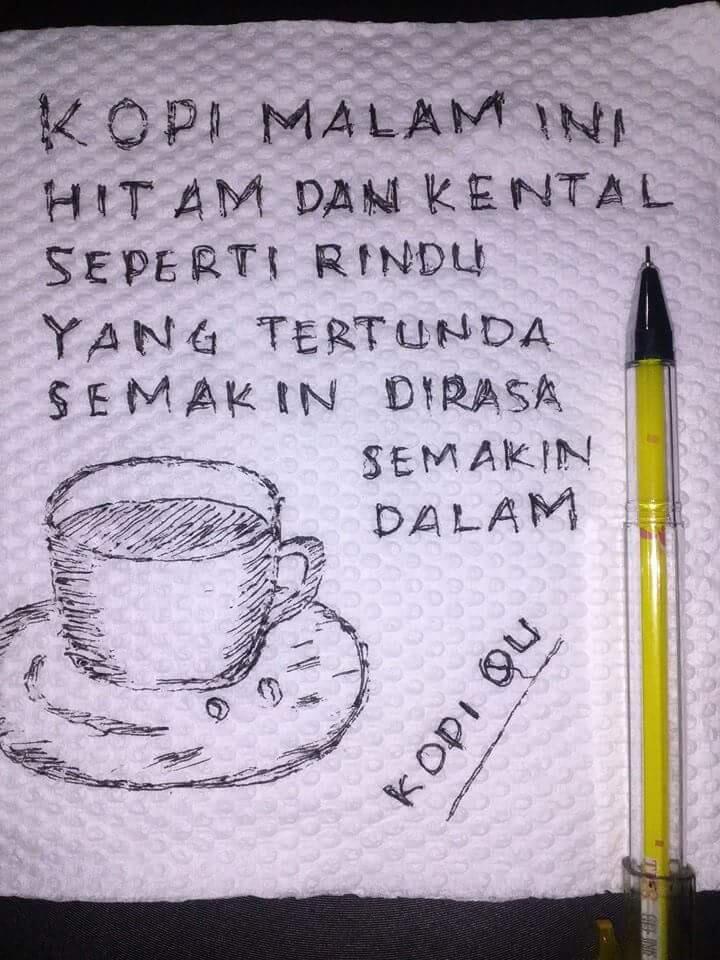 KOPI MALAM INI
HITAM DAN KENTAL
SEPERTI RINDU
YANG TERTUNDA
SEMAKIN DIRASA
SEMAKIN
DALAM
KOPI QU